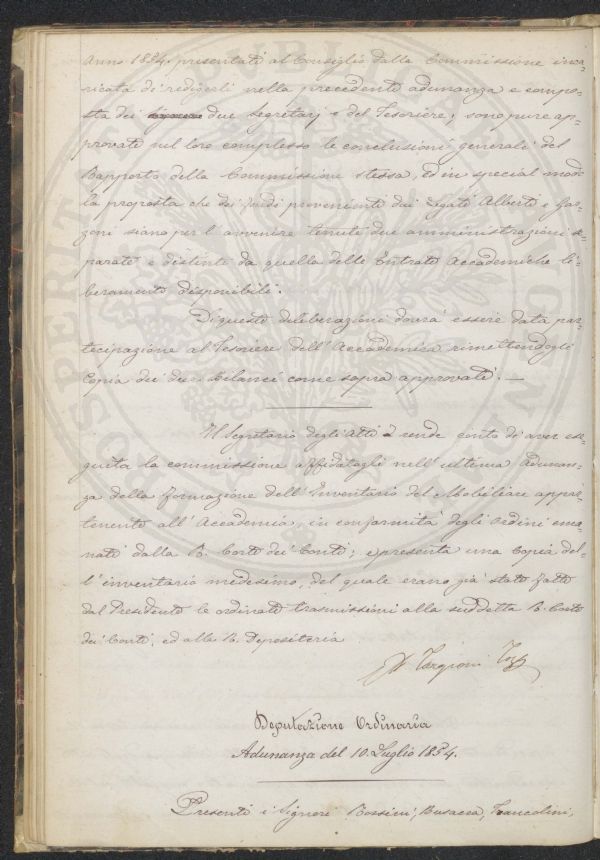 Anno 1854. presentati al Consiglio dalla Commissione inca=
ricata di redigerli nella precedente adunanza e compo=
sta dei due Segretarj e del Tesoriere; sono pure ap=
provate nel loro complesso le conclusioni generali del
Rapporto della Commissione stessa, ed in special modo
la proposta che dei fondi provenienti dai Legati Alberti e Gar=
zoni siano per l'avvenire tenute due amministrazioni se=
parate e distinte da quella delle Entrate Accademiche li=
beramente disponibili.
Di queste deliberazioni dovrà essere data par=
tecipazione al Tesoriere dell'Accademia rimettendogli
Copia dei due Bilanci come sopra approvati. —
Il Segretario degli Atti rende conto di aver ese=
guita la commissione affidatagli nell'ultima Adunan=
za della formazione dell'Inventario del Mobiliare appar=
tenente all'Accademia, in conformità degli Ordini ema=
nati dalla R. Corte dei Conti; e presenta una Copia del=
l'inventario medesimo, del quale erano già state fatte
dal Presidente le ordinate trasmissioni alla suddetta R. Corte
dei Conti, ed alla R. Depositeria
Targioni Tozz
Deputazione Ordinaria
Adunanza del 10. Luglio 1854.
Presenti i Signori Rossini, Busacca, Francolini,
PROSPERITATI PUBLICAE